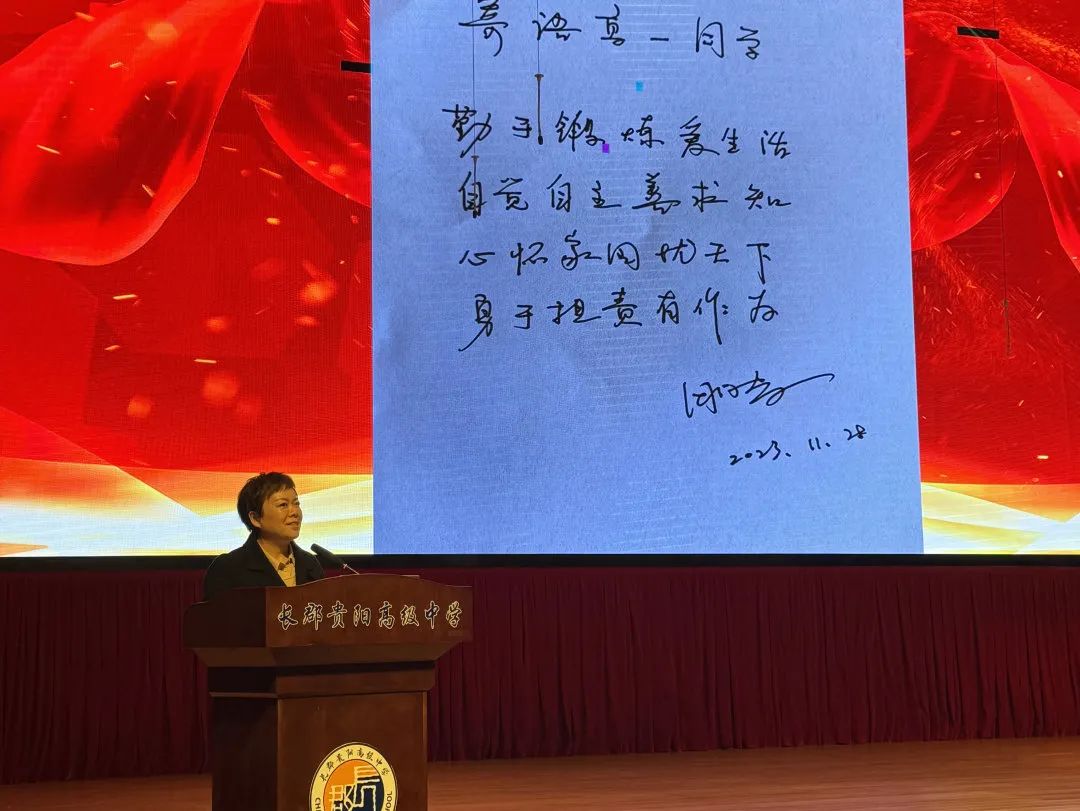 寄语高一同学
勤于锻炼爱生活
自觉自主善求知
心怀家国忧天下
勇于担责有作为
2023.11.28
长郡贵阳高级中学
长郡贵阳高级中学